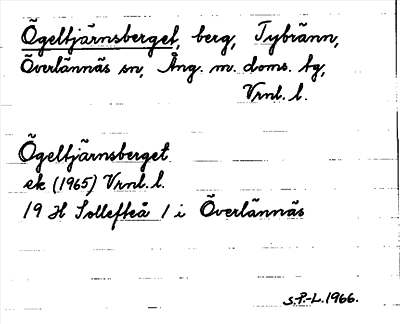 Ögeltjärnsberget, berg, Tybränn,
Överlännäs sn, Ång. m. doms. tg,
Vrnl. l.
Ögeltjärnsberget
ek (1965) Vrnl. l.
19 H Sollefteå 1 i Överlännäs
S.P.-L. 1966.